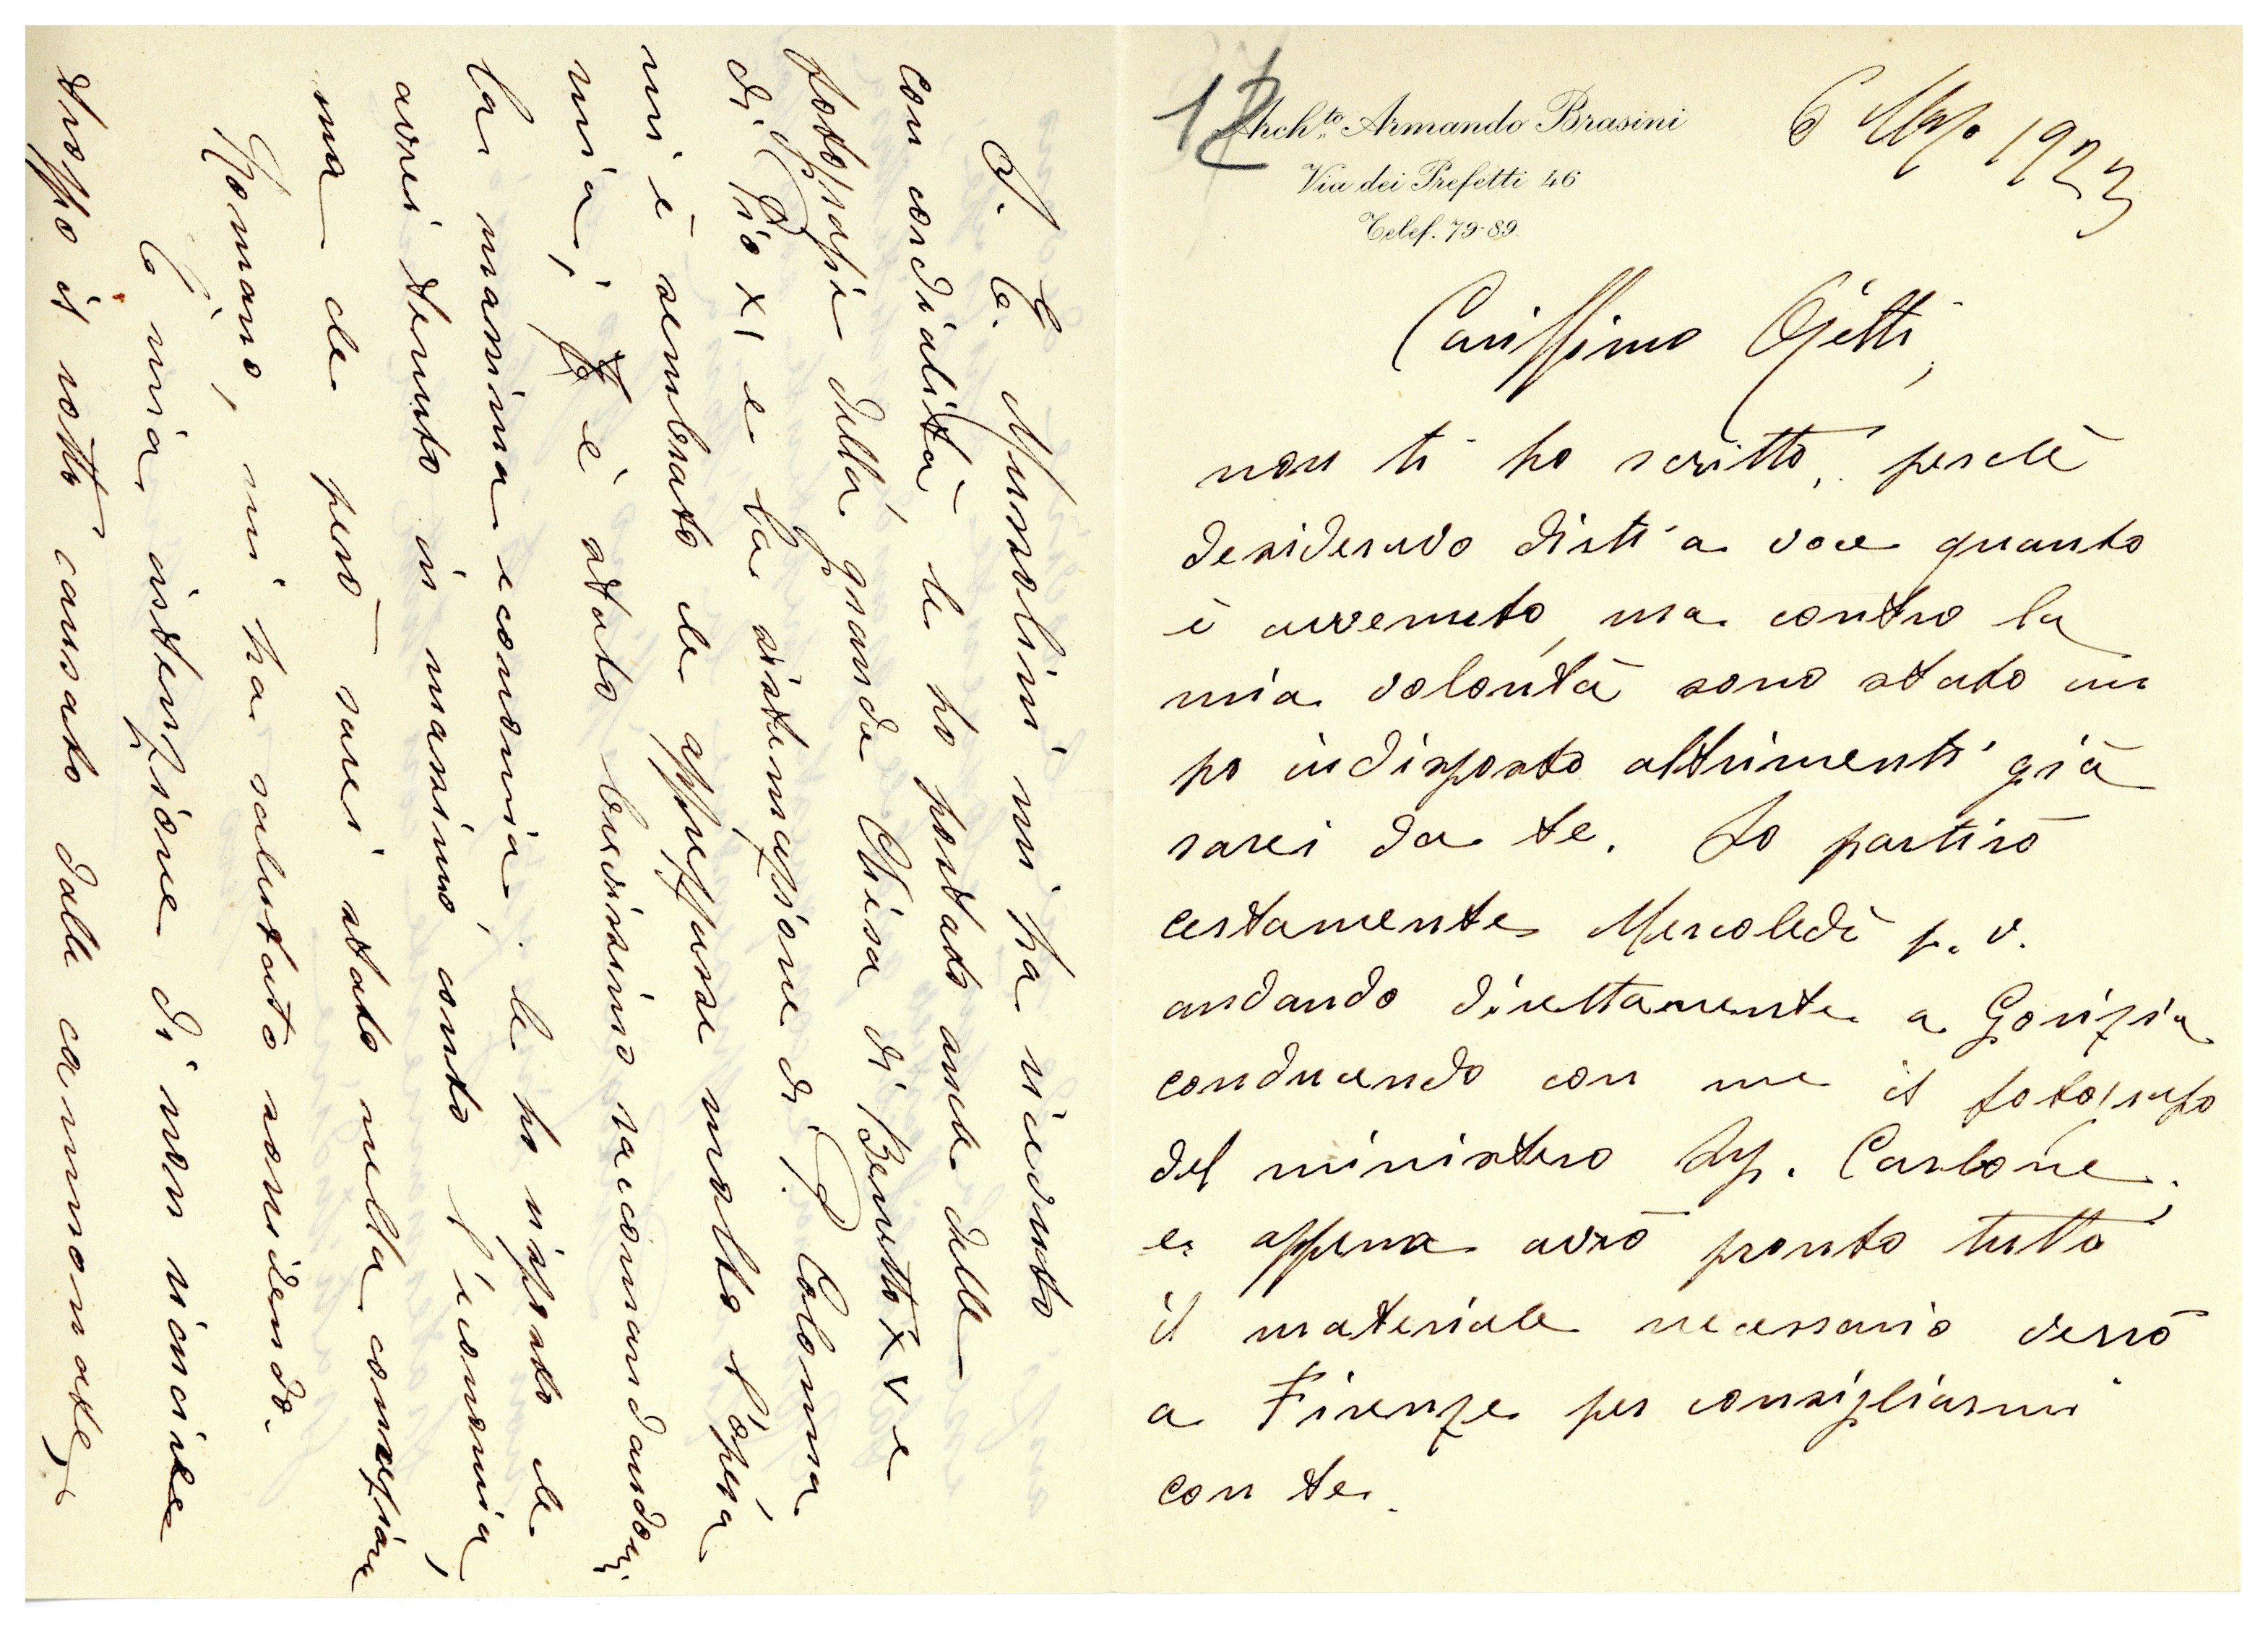 12
Arch.to Armando Brasini
Via dei Prefetti 46
Telef. 79-89.
6 Mzo 1923
Carissimo Ojetti,
non ti ho scritto, perchè
desideravo dirti a voce quanto
è avvenuto, ma contro la
mia volontà sono stato un
po indisposto altrimenti già
sarei da te. Io partirò
certamente Mercoledì p. v.
andando direttamente a Gorizia
conducendo con me il fotografo
del ministero Sig. Carbone.
e appena avrò pronto tutto
il materiale necessario verrò
a Firenze per consigliarmi
con te.
S. E. Mussolini mi ha ricevuto
con cordialità, le ho portato anche delle
fotografie della grande Chiesa di Benetto XV e
di Pio XI e la sistemazione di P. Colonna
mi è sembrato che apprezzasse molto l'opera
mia, è stato bravissimo raccomandandomi
la massima economia; le ho risposto che
avrei tenuto in massimo conto l'economia,
ma che però sarei stato nella concezione
Romano, mi ha salutato sorridendo.
È mia intenzione di non rimuovere
troppo il rotto causato dalle cannonate,